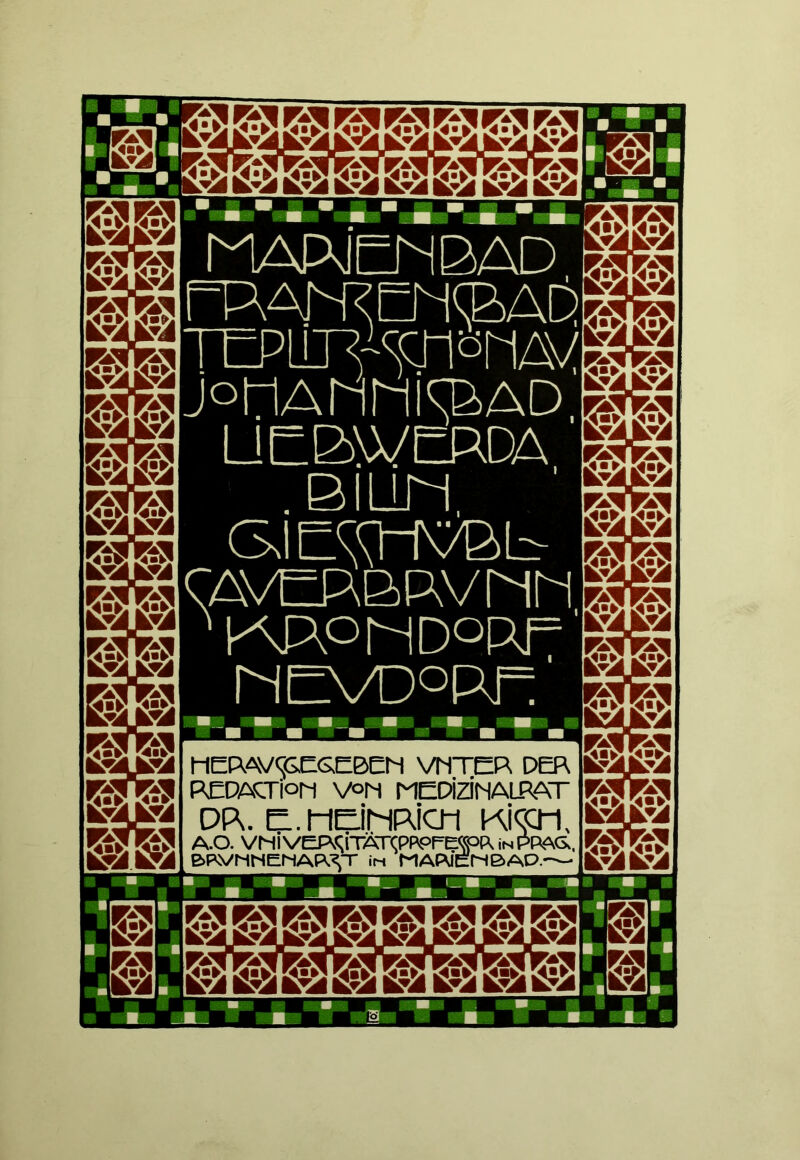 MARIENBAD,
FRANZENSBAD,
TEPLITZ-SCHÖNAV,
JOHANNISBAD,
LIEBWERDA,
BILIN,
GIESSHÜBL-
SAVERBRVNN,
KRONDORF,
NEVDORF.
HERAVSGEGEBEN VNTER DER
REDACTION VON MEDIZINALRAT
DR. E. HEINRICH KISCH,
A.O. VNIVERSITÄTSPROFESSOR IN PRAG,
BRVNNENARZT IN MARIENBAD.